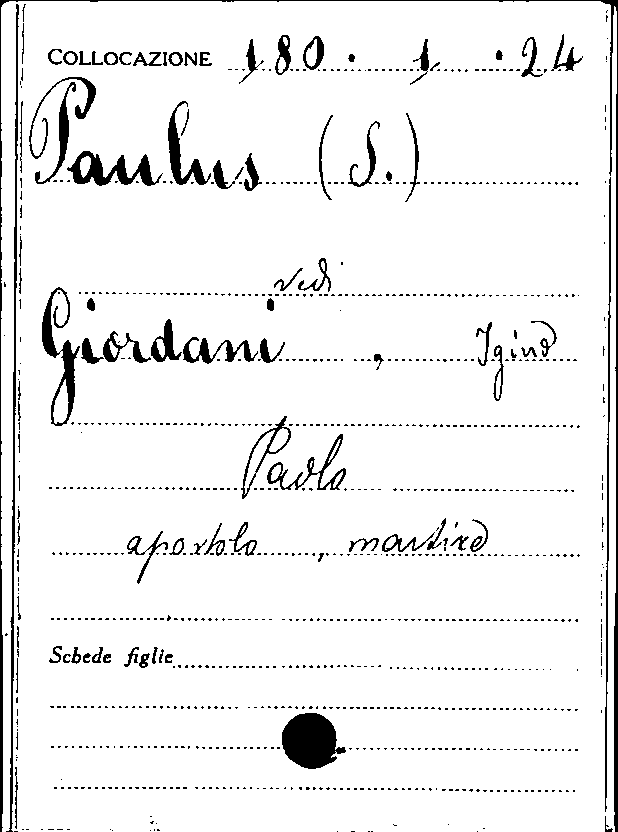 COLLOCAZIONE 180 · 1 · 24
Paulus (S.)
vedi
Giordani, Igino
Paolo
apostolo, martire
Schede figlie